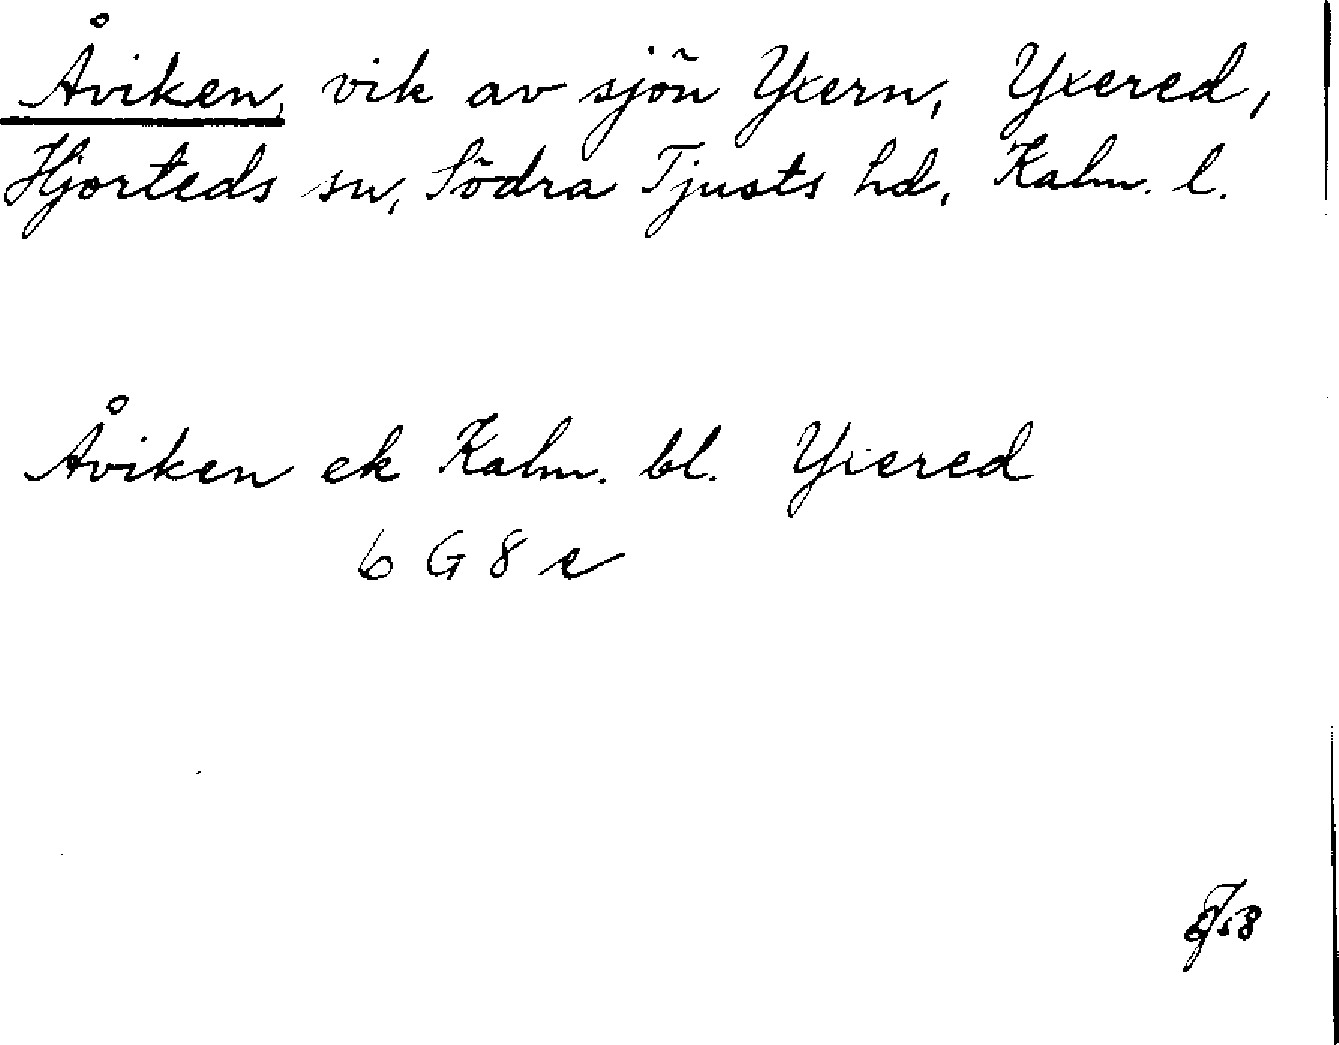 Åviken, vik av sjön Yxern, Yxered,
Hjorteds sn, Södra Tjusts hd, Kalm. l.
Åviken ek Kalm. bl. Yxered
6 G 8 e